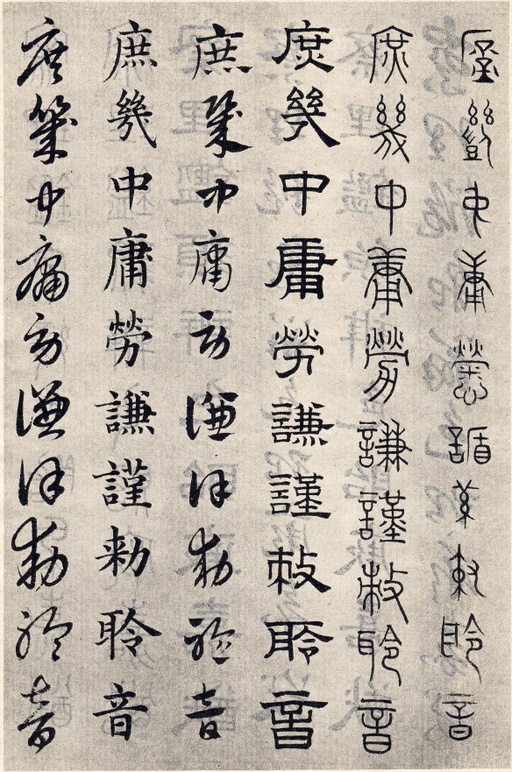 庶幾中庸勞謙謹敕聆音
庶幾中庸勞謙謹敕聆音
庶幾中庸勞謙謹敕聆音
庶幾中庸勞謙謹敕聆音
庶幾中庸勞謙謹勑聆音
庶幾中庸勞謙謹敕聆音